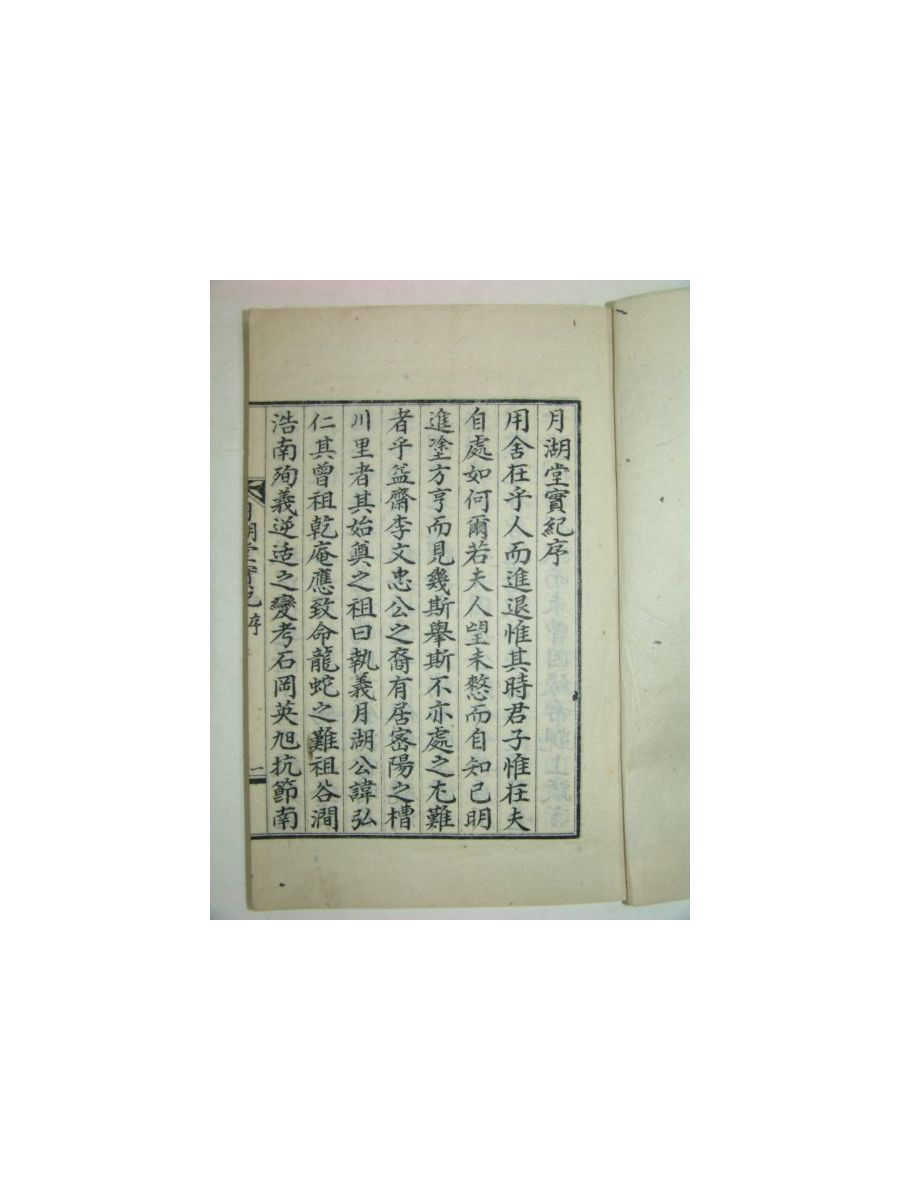 月湖堂實紀序
用舍在乎人而進退惟其時君子惟在夫
自處如何爾若夫人望未憗而自知已明
進塗方亨而見幾斯舉斯不亦處之尤難
者乎益齋李文忠公之裔有居密陽之槽
川里者其始奠之祖曰執義月湖公諱弘
仁其曾祖乾庵應致命龍蛇之難祖谷澗
浩南殉義逆适之變考石岡英旭抗節南
月湖堂實紀序
一